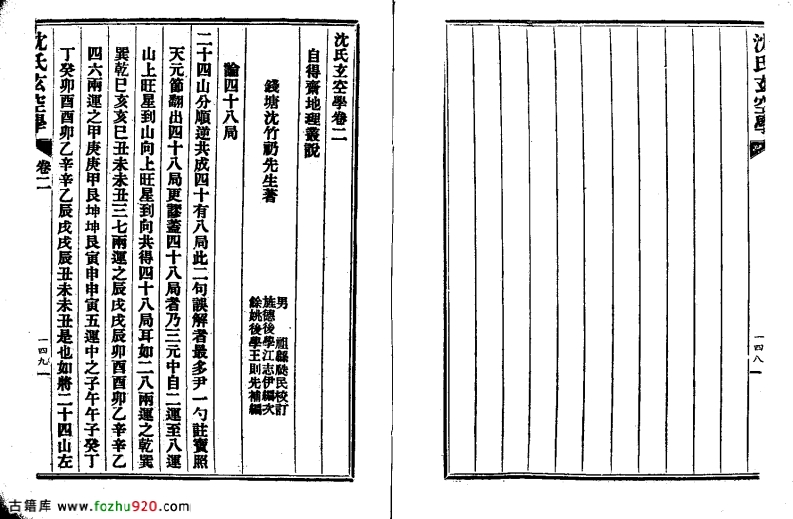 沈氏玄空學
一四八
沈氏玄空學卷二
自得齋地理叢說
錢塘沈竹礽先生著
男 祖緜瓞民校訂
旌德後學江志伊編次
餘姚後學王則先補編
論四十八局
二十四山分順逆共成四十有八局此二句誤解者最多尹一勺註寶照
天元節翻出四十八局更謬蓋四十八局者乃三元中自二運至八運
山上旺星到山向上旺星到向共得四十八局耳如二八兩運之乾巽
巽乾巳亥亥巳丑未未丑三七兩運之辰戌戌辰卯酉酉卯乙辛辛乙
四六兩運之甲庚庚甲艮坤坤艮寅申申寅五運中之子午午子癸丁
丁癸卯酉酉卯乙辛辛乙辰戌戌辰丑未未丑是也如將二十四山左
沈氏玄空學 卷二
一四九
古籍库 www.fozhu920.com